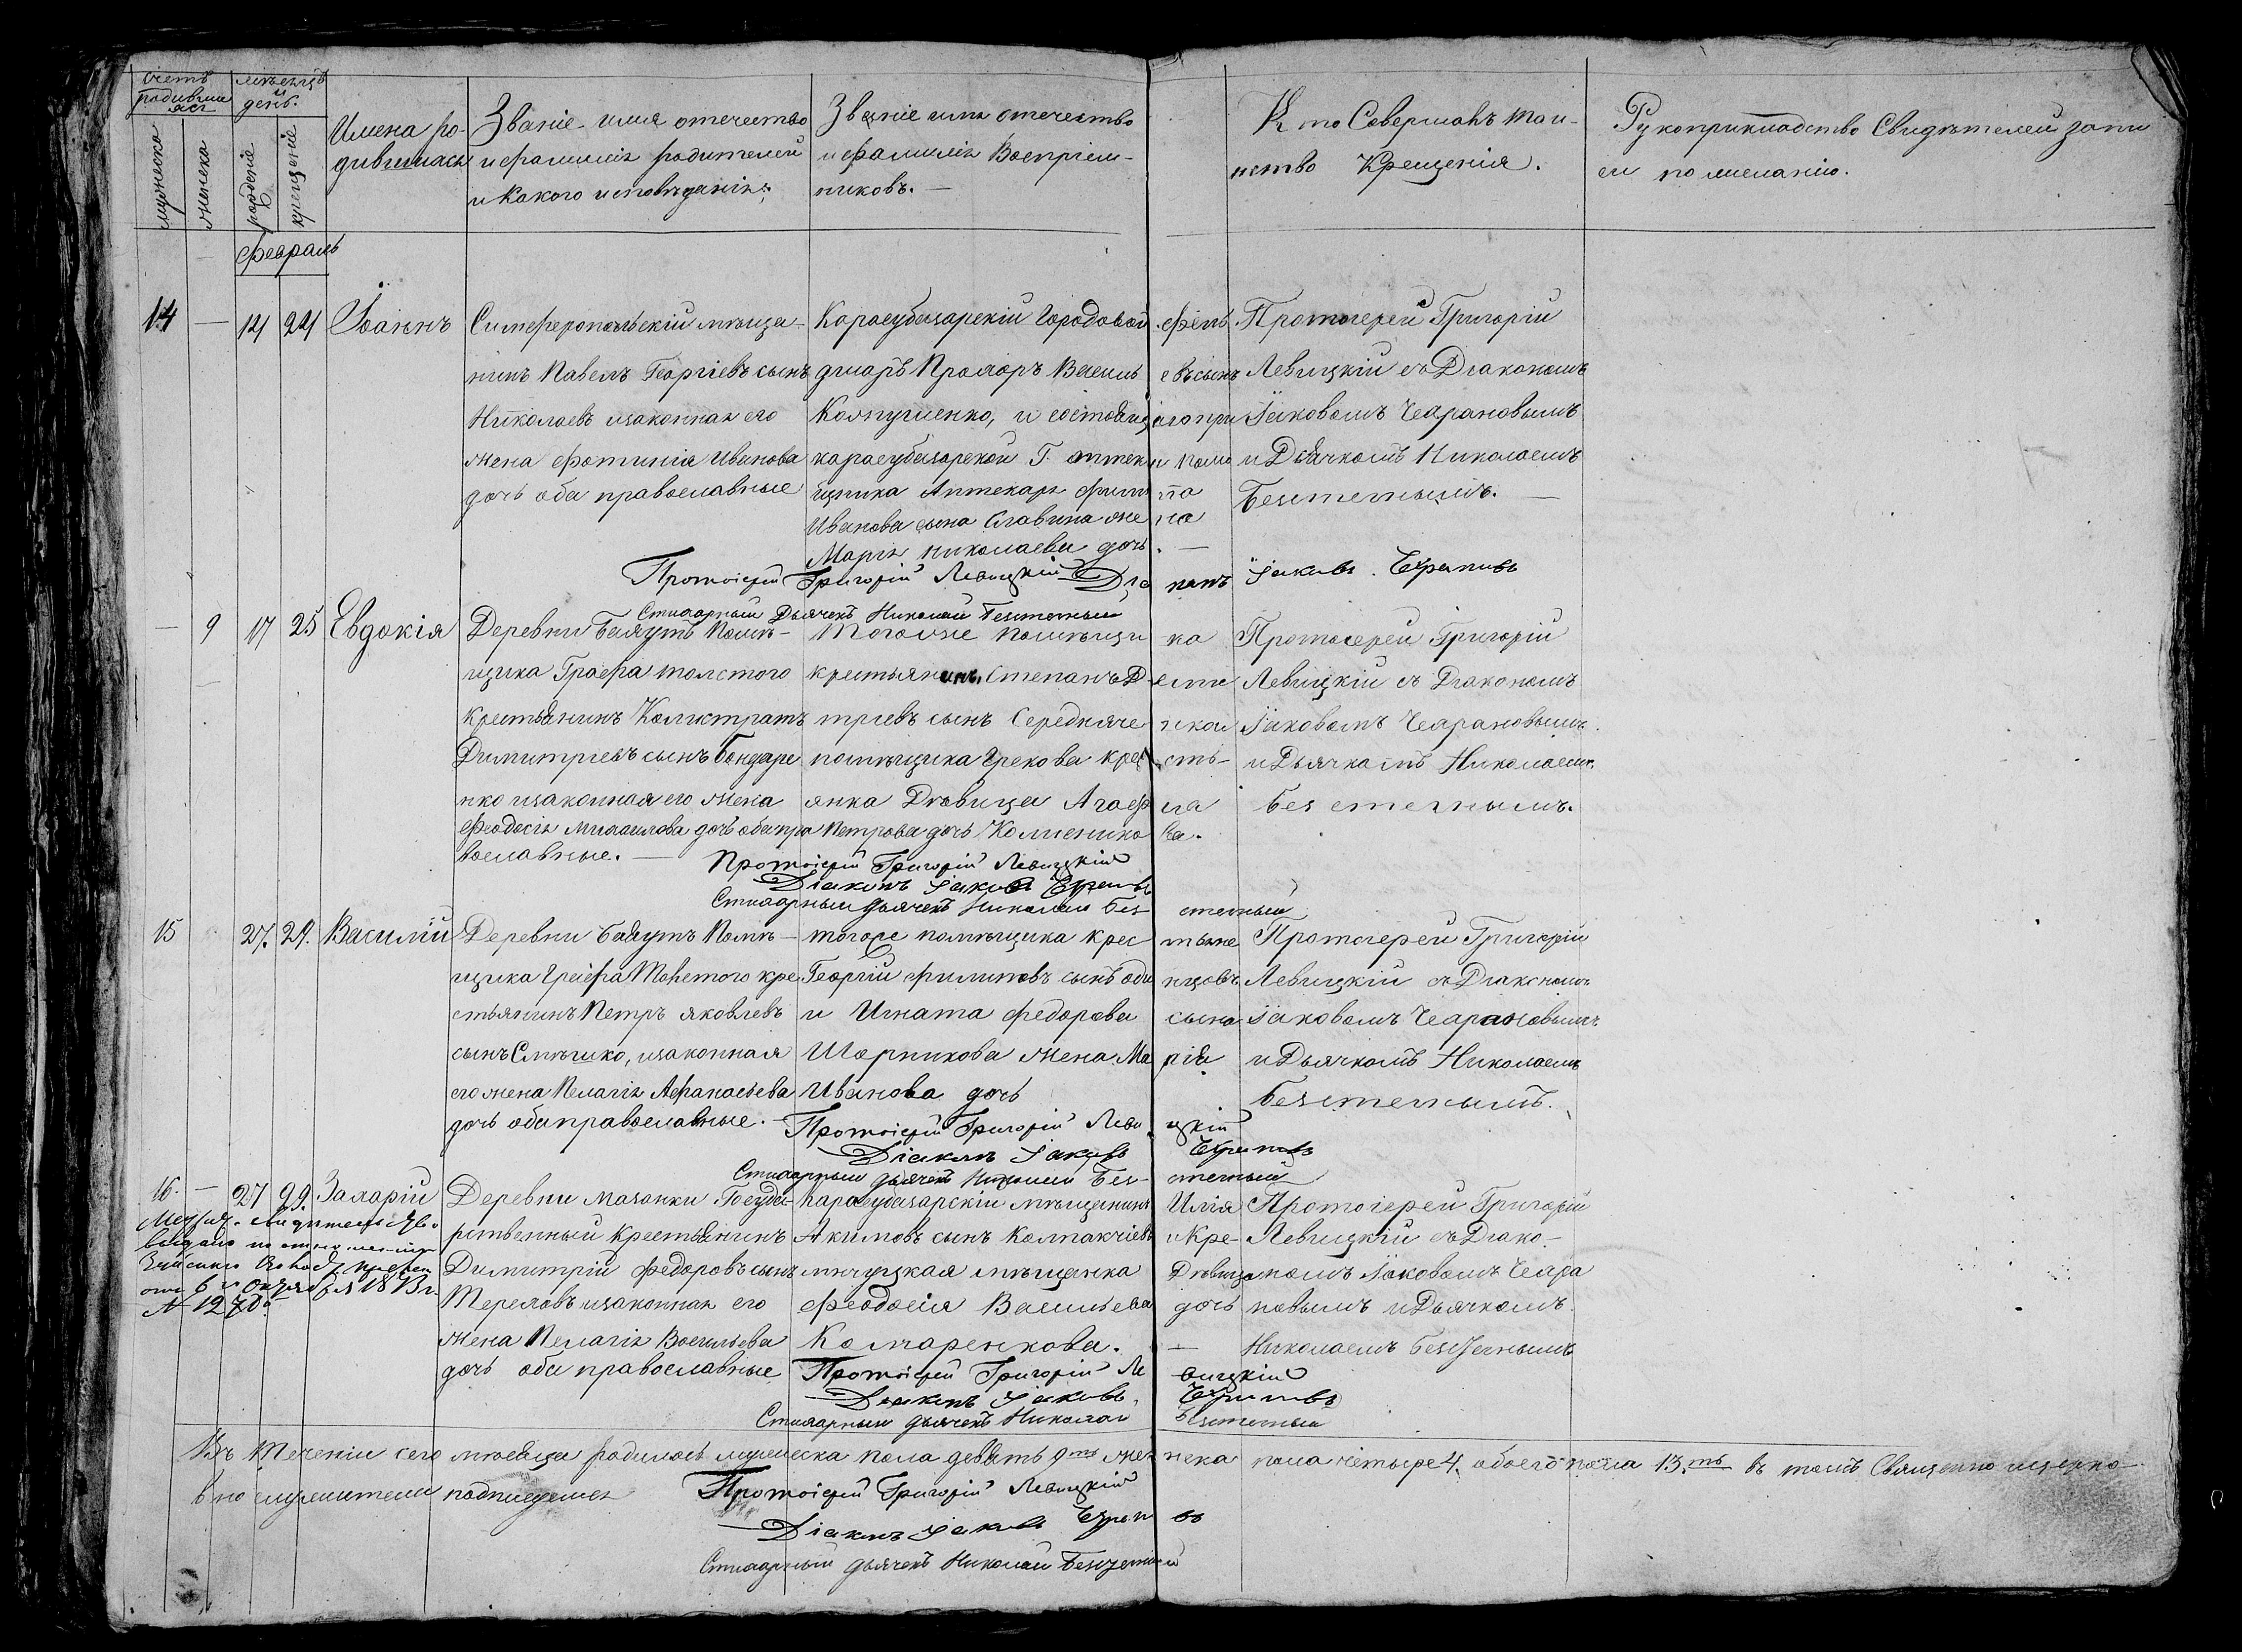 Счетъ родивши яся
мѣсяцъ и день.
мужеска
женска
рожденія
крещенія
Имена ро-
дившихся
Званіе имя отечество
и фамилія родителей
и какого исповѣданія.
Званіе имя отечество
и фамилія Воспріем-
никовъ. —
Кто Совершалъ таи-
нство Крещенія.
Рукоприкладство Свидѣтелей запи
си по желанію.
Февраль
14 — 14 24 Іоаннъ
Симферопольскій мѣща-
нинъ Павелъ Георгіевъ сынъ
Николаевъ изаконная его
жена Фотинія Иванова
дочь оба православные
Карасубазарскій Городовой фель
дшаръ Прохоръ Василь евъ сынъ
и состоящ аго при
карасубазарской Г. аптек и пом
щника Аптекаря Фили па
Иванова сына Славина же на
Марія Николаева дочь. —
Протоіерей Григорій
Левицкій съ Діакономъ
Іаковомъ
и Дьячкомъ Николаемъ
Безсметнымъ. —
Протоіерей Григорій Левицкій Діа конъ Іаковъ
Стихарный Дьячекъ Николай
— 9 17 25 Евдокія
Деревни Баяутъ Помѣ-
щика Графа толстого
крестьянинъ Калистратъ
Димитріевъ сынъ Бондаре
нко изаконная его жена
Феодосія Михаилова дочь оба пра
вославные. —
Тогоже помѣщи ка
крестьянинъ Степанъ Д ими
тріевъ сынъ Середняче нко и
помѣщика Грекова крес сть-
янка Дѣвица Агаф ія
Петрова дочь
Протоіерей Григорій
Левицкій съ Діакономъ
Іаковомъ
и Дьячкомъ Николаемъ
Безсметнымъ.
Протоіерей Григорій Левицкій
Діаконъ Іаковъ
Стихарный дьячекъ Николай Без сметный
15 27. 29. Василій
Деревни Баяутъ Помѣ-
щика Графа Толстого кре
стьянинъ Петръ Яковлевъ
сынъ изаконная
его жена Пелагія Афанасьева
дочь оба православные. —
тогоже помѣщика крес тьяне
Георгій Филиповъ сынъ Оди нцовъ
и Игната Федорова сына
Шорникова жена Ма рія
Иванова дочь
Протоіерей Григорій
Левицкій съ Діакономъ
Іаковомъ
и Дьячкомъ Николаемъ
Безсметнымъ.
Протоіерей Григорій Леви цкій
Діаконъ Іаковъ
Стихарный дьячекъ Николай Без- сметный
16. — 27 29 Захарій
выдано по
№ 1270
Деревни Мазанки Госуда-
рственный крестьянинъ
Димитрій Федоровъ сынъ
Тереховъ изаконная его
жена Пелагія Васильева
дочь оба православные
Карасубазарскій мѣщанинъ Илія
Акимовъ сынъ Колпакчіевъ и Кре-
менчуцкая мѣщанка Дѣвица
Феодосія Васильева дочь
Комаренкова. —
Протоіерей Григорій
Левицкій съ Діако-
номъ Іаковомъ
и Дьячкомъ
Николаемъ Безсметнымъ
Протоіерей Григорій Ле вицкій
Діаконъ Іаковъ
Стихарный дьячекъ Николай Безсметный
Въ теченіи сего мѣсяца родилось мужеска пола девять 9ть женска пола четыре 4. обоего пола 13.ть въ томъ Священно церко-
вно служители подписуемся
Протоіерей Григорій Левицкій
Діаконъ Іаковъ
Стихарный дьячекъ Николай Безсметный